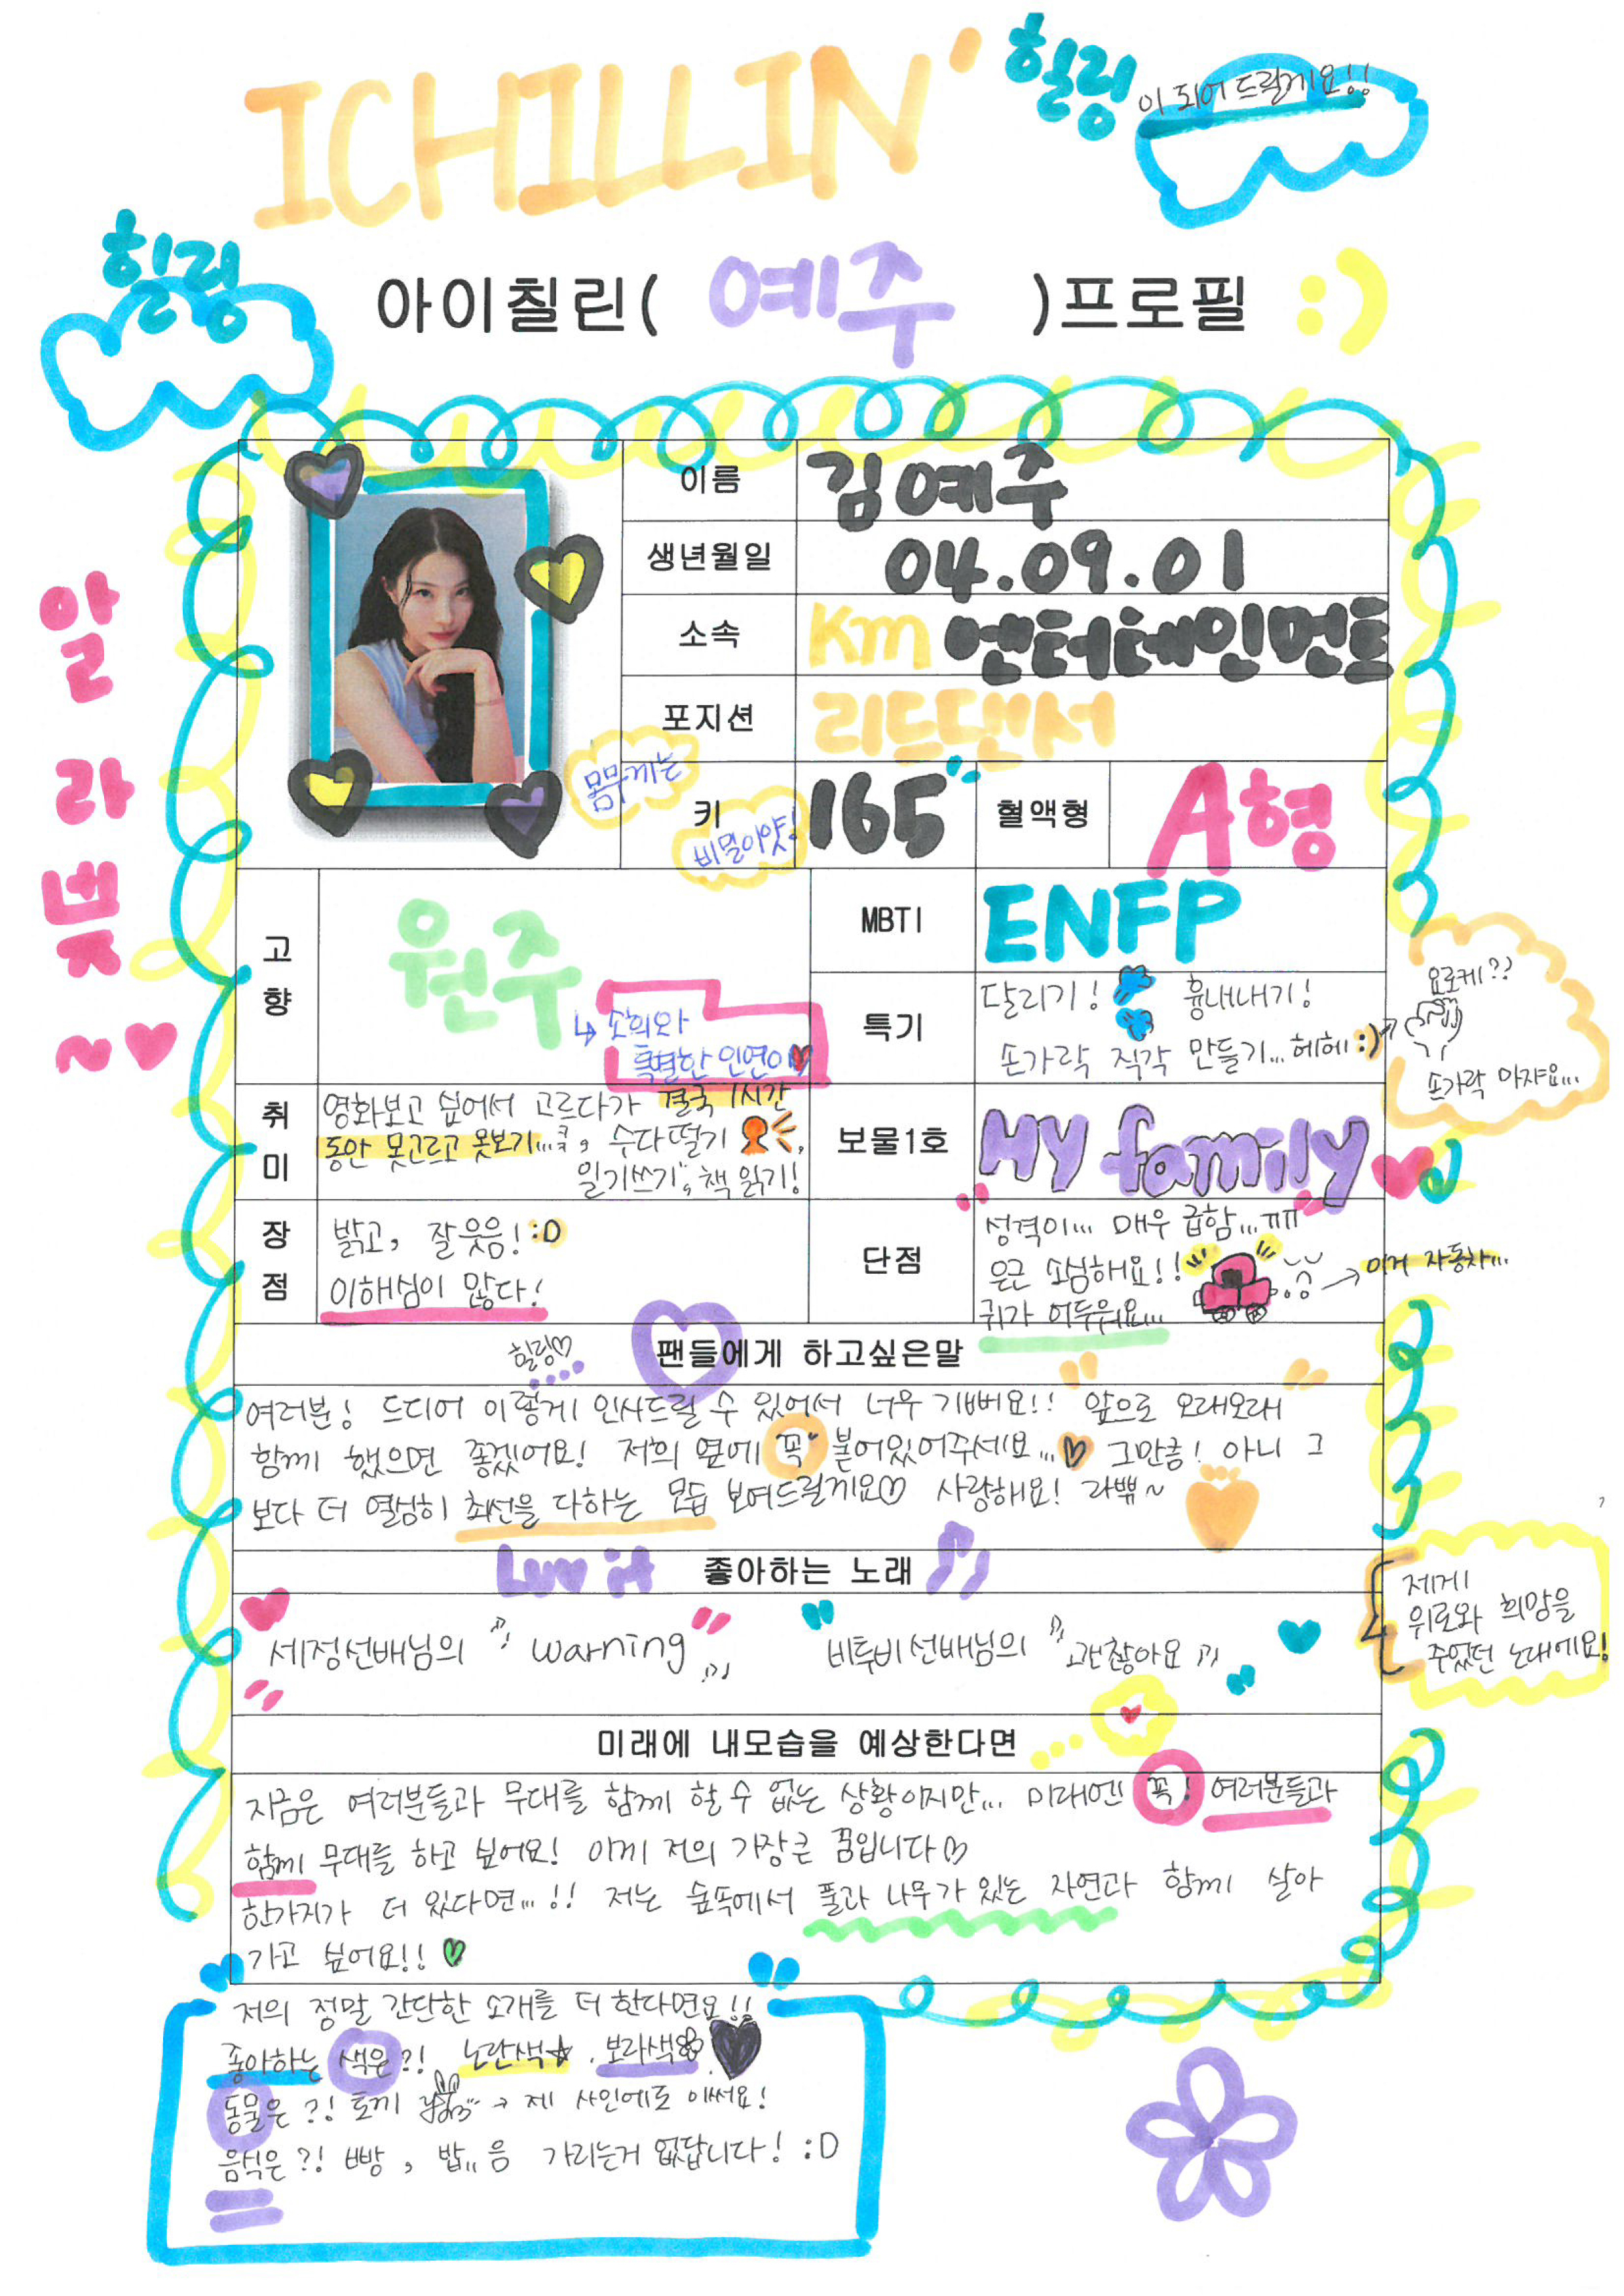 ICHILLIN'
힐링
이 되어 드릴게요!!
힐링
아이칠린( 예주 )프로필 :)
알
라
뷰
~
이름 김예주
생년월일 04.09.01
소속 Km 엔터테인먼트
포지션 리드댄서
몸무게는
비밀이얏!
키 165 혈액형 A형
고향 원주
↳ 소희와
특별한 인연이
MBTI ENFP
특기 달리기! 흉내내기!
손가락 직각 만들기... 헤헤 :)
요로케??
손가락 아쟈요...
취미 영화보고 싶어서 고르다가 결국 1시간
동안 못고르고 못보기...ㅋ, 수다떨기,
일기쓰기, 책 읽기!
보물1호 My family
장점 밝고, 잘웃음! :D
이해심이 많다!
단점 성격이... 매우 급함...ㅠㅠ
은근 소심해요!!
귀가 어두워요...
→ 이거 자동차...
힐링♡
팬들에게 하고싶은말
여러분! 드디어 이렇게 인사드릴 수 있어서 너무 기뻐요!! 앞으로 오래오래
함께 했으면 좋겠어요! 저희 옆에 꼭 붙어있어주세요...♡ 그만큼! 아니 그
보다 더 열심히 최선을 다하는 모습 보여드릴게요♡ 사랑해요! 라쀼~
Luv it 좋아하는 노래
세정선배님의 " warning "
비투비선배님의 " 괜찮아요 "
제게
위로와 희망을
주었던 노래에요!
미래에 내모습을 예상한다면
지금은 여러분들과 무대를 함께 할 수 없는 상황이지만... 미래엔 꼭! 여러분들과
함께 무대를 하고 싶어요! 이게 저의 가장큰 꿈입니다♡
한가지가 더 있다면...!! 저는 숲속에서 풀과 나무가 있는 자연과 함께 살아
가고 싶어요!! ♡
저의 정말 간단한 소개를 더 한다면요!!
좋아하는 색은?! 노란색☆, 보라색
동물은?! 토끼 → 제 사인에도 이써요!
음식은?! 빵, 밥.. 음 가리는거 없답니다! :D